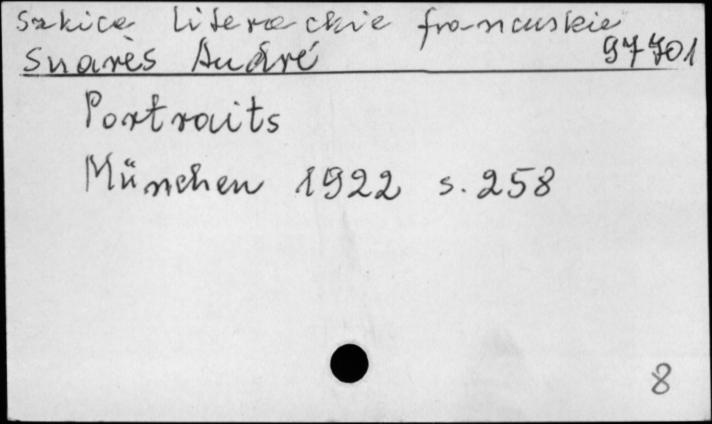 Szkice literackie francuskie
Suarès André 97701
Portraits
München 1922 s. 258
8